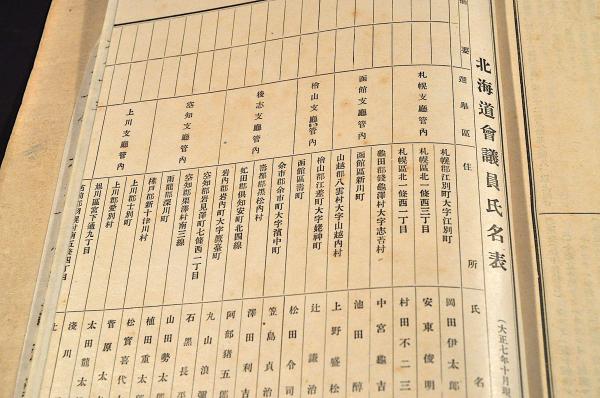 北海道會議員氏名表
(大正七年十月現
要
選擧區
住所
氏名
札幌支廳管內
札幌郡江別町大字江別町
岡田伊太郎
札幌區北一條西三丁目
安東俊明
札幌區北一條西二丁目
村田不二三
函館支廳管內
龜田郡錢龜澤村大字志苔村
中宮龜吉
函館區新川町
池田醇
山越郡八雲村大字山越內村
上野盛松
檜山支廳管內
檜山郡江差町大字姥神町
辻謙治
函館區壽町
松田令司
後志支廳管內
余市郡余市町大字濱中町
笠島貞治
壽都郡黑松內村
澤田利吉
虻田郡俱知安町北四線
阿部猪五郎
岩內郡岩內町大字鷹臺町
丸山浪彌
空知支廳管內
空知郡岩見澤町七條西一丁目
石黑長平
空知郡栗澤村南三線
山田勢太郎
雨龍郡深川町
植田重太郎
樺戶郡新十津川村
松實喜代太
上川支廳管內
上川郡士別町
菅原太
上川郡愛別村
太田龍太
旭川區宮下通九丁目
淺川
村南五條四丁目